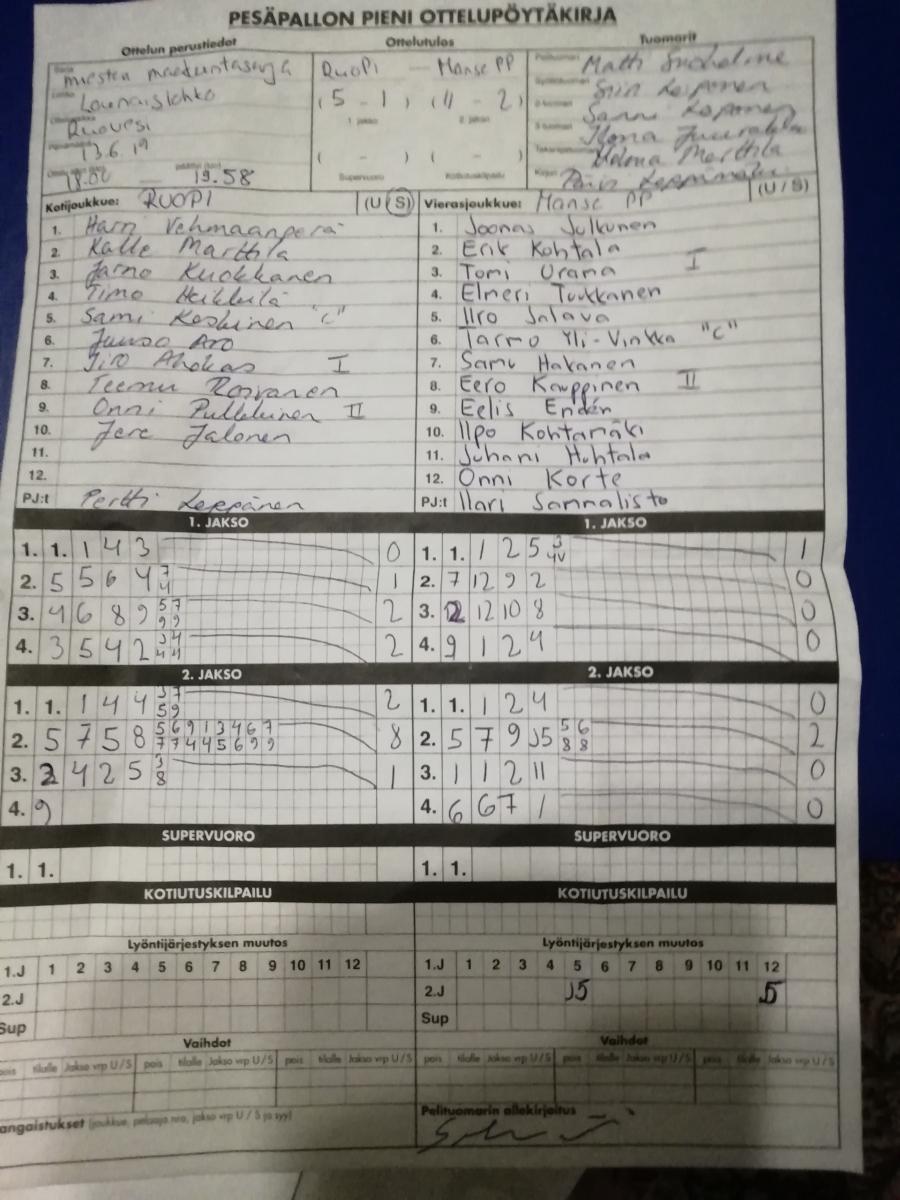 PESÄPALLON PIENI OTTELUPÖYTÄKIRJA
Ottelun perustiedot
Ottelutulos
Tuomarit
miesten maakuntasarja
RuoPi — Manse PP
Matti
Lounaislohko
(5 - 1) (11 - 2)
Siiri Leponen
Ruovesi
1. jakso 2. jakso
Sanni
13.6.19
( - ) ( - )
Ilona
Marttila
18.00 — 19.58
Supervuoro Kotiutuskilpailu
Kirjuri
Kotijoukkue: RUOPI (U/S)
Vierasjoukkue: Manse PP (U/S)
1. Harri Vehmaanperä
2. Kalle Marttila
3. Jarno Kuokkanen
4. Timo Heikkilä
5. Sami Koskinen "C"
6. Juuso Aro
7. Jiro Ahokas I
8. Teemu Roivanen
9. Onni Pulkkinen II
10. Jere Jalonen
11.
12.
PJ:t Pertti Leppänen
1. Joonas Julkunen
2. Erik Kohtala
3. Tomi Urana I
4. Elmeri Tuukkanen
5. Iiro Jalava
6. Tarmo Yli-Vinkka "C"
7. Samu Hakanen
8. Eero Kauppinen II
9. Eelis Endén
10. Ilpo Kohtamäki
11. Juhani Huhtala
12. Onni Korte
PJ:t Ilari Sannalisto
1. JAKSO
1. 1. 1 4 3 0
2. 5 5 6 4 7 4 1
3. 4 6 8 9 5 7 9 9 2
4. 3 5 4 2 3 4 4 4 2
1. JAKSO
1. 1. 1 2 5 3 4V 1
2. 7 12 9 2 0
3. 2 12 10 8 0
4. 9 1 2 4 0
2. JAKSO
1. 1. 1 4 4 3 7 5 9 2
2. 5 7 5 8 5 6 9 1 3 4 6 7 7 7 4 4 5 6 9 9 8
3. 2 4 2 5 3 8 1
4. 9
2. JAKSO
1. 1. 1 2 4 0
2. 5 7 9 J5 5 6 8 8 2
3. 1 1 2 11 0
4. 6 6 7 1 0
SUPERVUORO
SUPERVUORO
1. 1.
1. 1.
KOTIUTUSKILPAILU
KOTIUTUSKILPAILU
Lyöntijärjestyksen muutos
Lyöntijärjestyksen muutos
1.J 1 2 3 4 5 6 7 8 9 10 11 12
1.J 1 2 3 4 5 6 7 8 9 10 11 12
2.J
2.J J5 5
Sup
Sup
Vaihdot
Vaihdot
pois tilalle Jakso vrp U/S pois tilalle Jakso vrp U/S pois tilalle Jakso vrp U/S
pois tilalle Jakso vrp U/S pois tilalle Jakso vrp U/S pois tilalle Jakso vrp U/S
angaistukset (joukkue, pelaaja nro, jakso vrp U/S ja syy)
Pelituomarin allekirjoitus